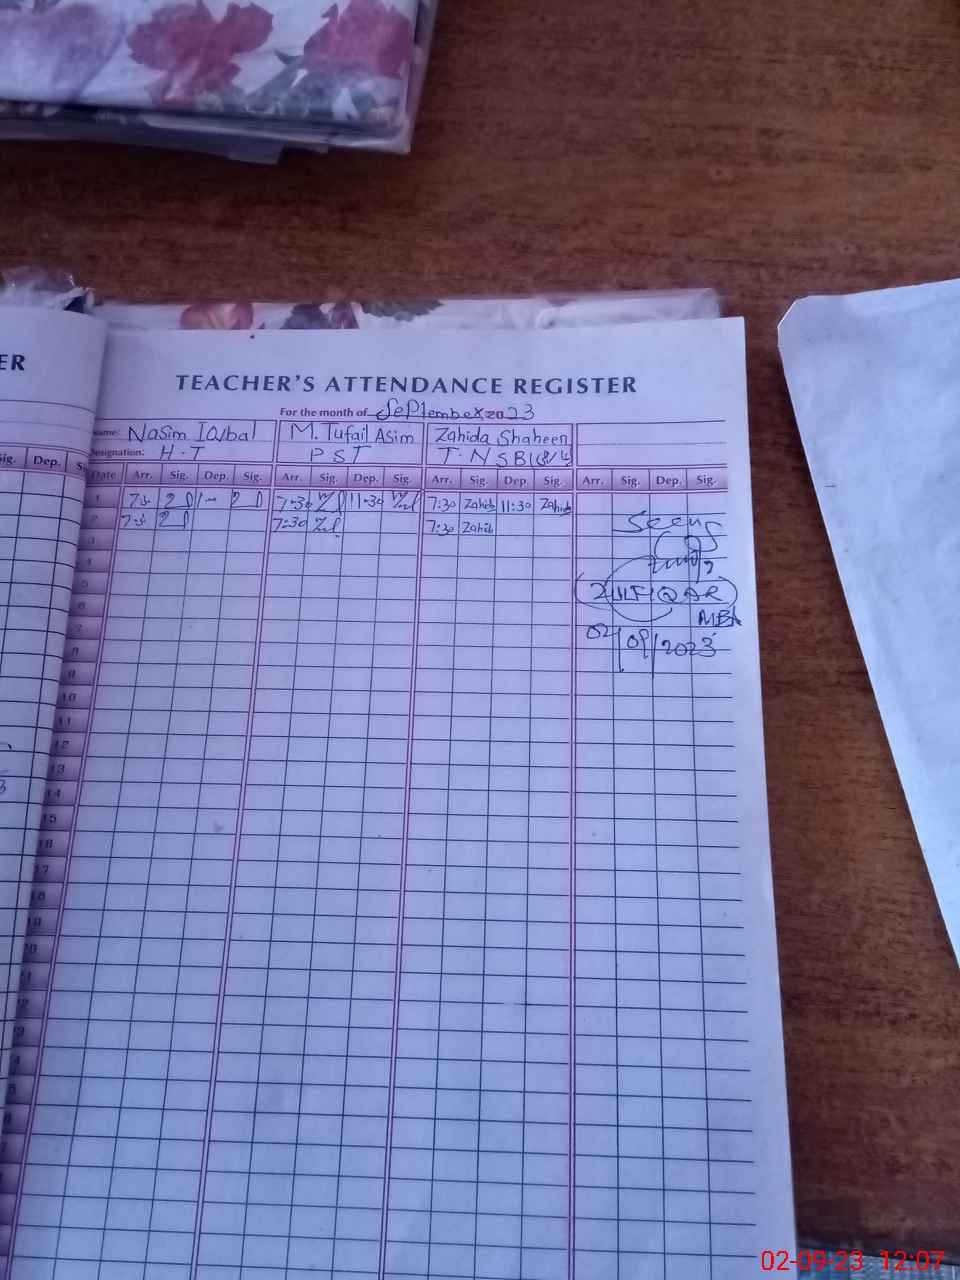 ER
TEACHER'S ATTENDANCE REGISTER
For the month of September 2023
Name: Nasim Iqbal M. Tufail Asim Zahida Shaheen
Designation: H.T PST T.N SBK
Sig. Dep. Date Arr. Sig. Dep. Sig. Arr. Sig. Dep. Sig. Arr. Sig. Dep. Sig. Arr. Sig. Dep. Sig.
1 7:30 11:30 7:30 Zahida 11:30 Zahida
2 7:30 7:30 Zahida
Seen
3
4
5 (ZULFIQAR)
6 MEA
7 02/09/2023
8
9
10
11
12
13
14
15
16
17
18
19
20
02-09-23 12:07